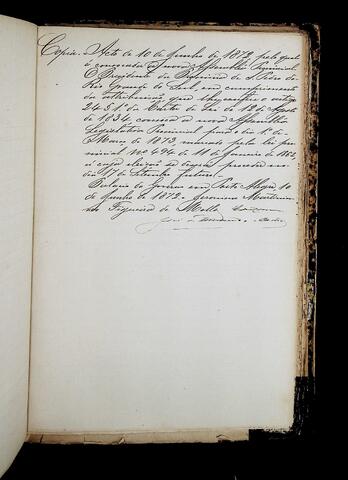 Copia. Acto de 10 de Junho de 1872, pelo qual
é convocada a nova Assembléa Provincial.
O Presidente da Provincia de S. Pedro do
Rio Grande do Sul, em cumprimento
da attribuição que lhe confere o artigo
24 § 1º da Carta de Lei de 12 de Agosto
de 1834, convoca a nova Assembléa
Legislativa Provincial para o dia 1º de
Março de 1873, marcado pela lei pro
vincial nº 494 de 11 de Janeiro de 1862
a cuja eleição se deverá proceder no
dia 17 de Setembro futuro.
Palacio do Governo em Porto Alegre 10
de Junho de 1872. Jeronimo Martinia
no Figueira de Mello